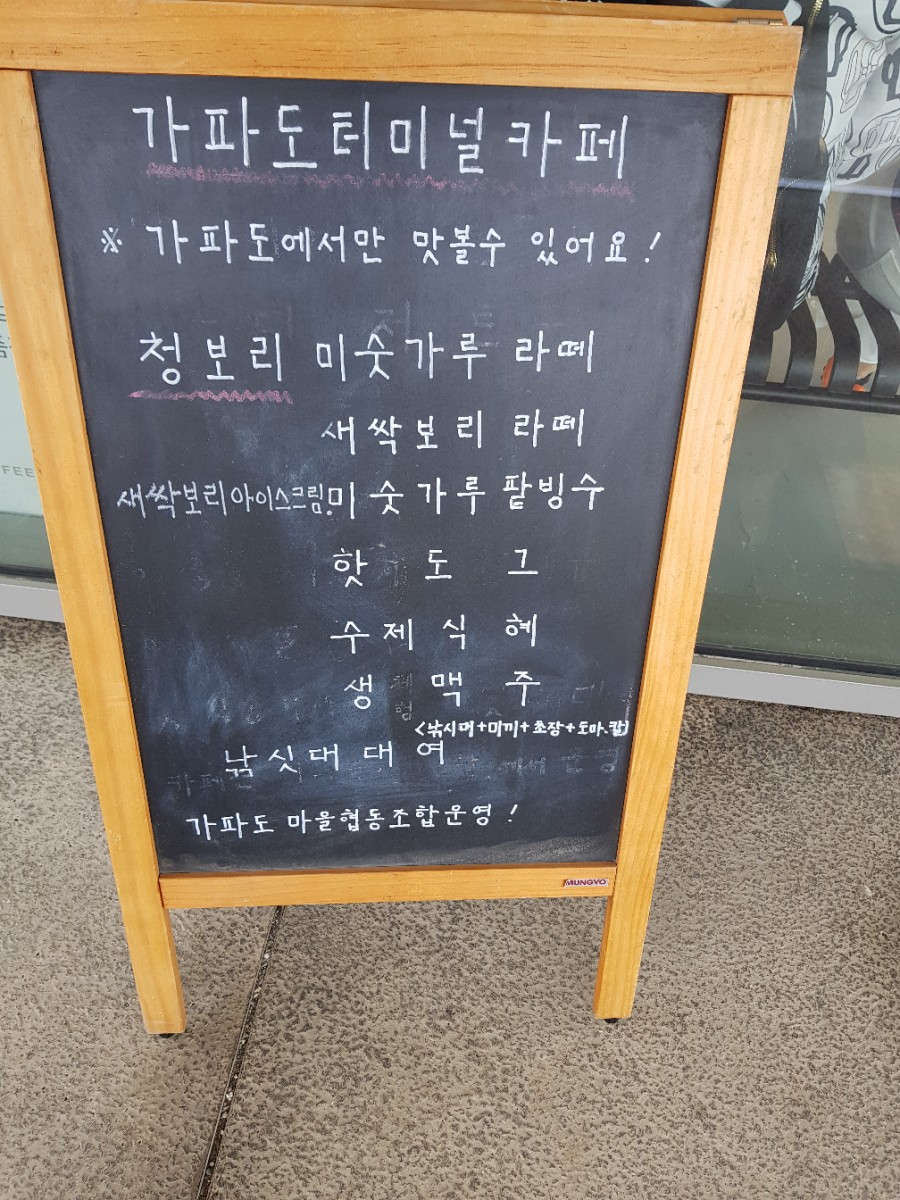 가파도터미널카페
※ 가파도에서만 맛볼수 있어요!
청보리 미숫가루 라떼
새싹보리 라떼
새싹보리아이스크림, 미숫가루 팥빙수
핫도그
수제식혜
생맥주
<낚시대+미끼+초장+도마.칼)
낚싯대 대여
가파도 마을협동조합운영!
MUNGYO
FEE